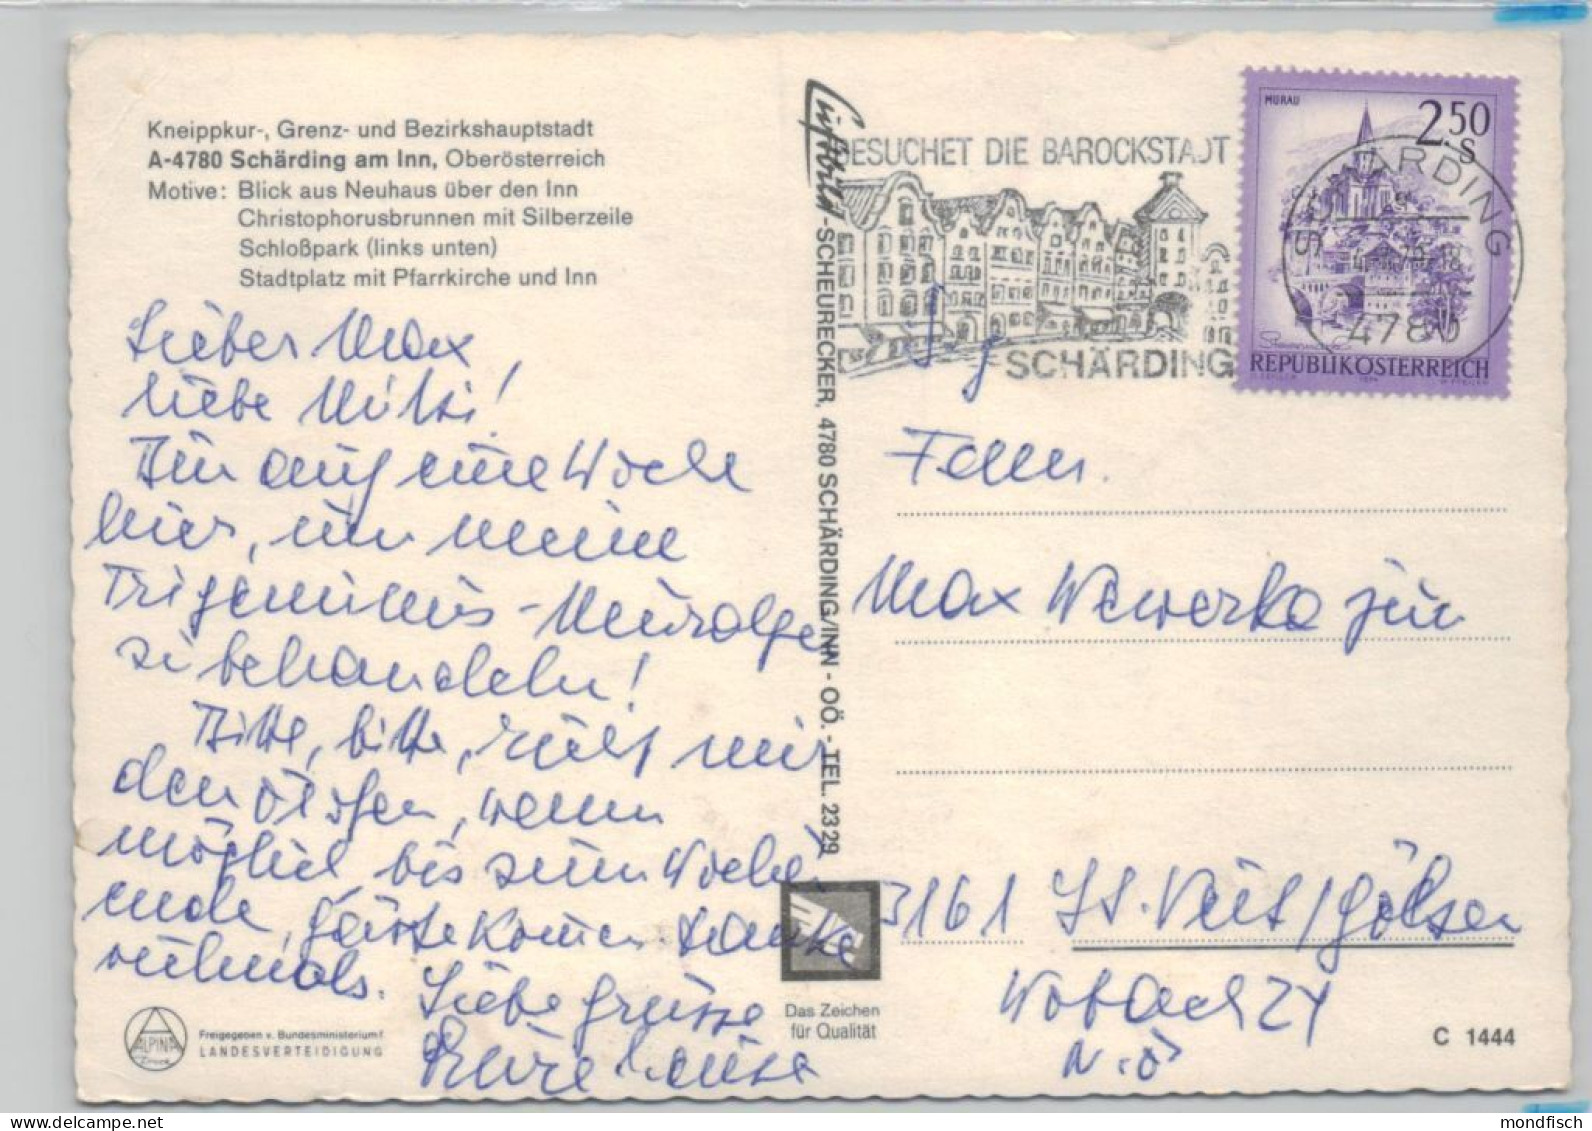 Kneippkur-, Grenz- und Bezirkshauptstadt
A-4780 Schärding am Inn, Oberösterreich
Motive: Blick aus Neuhaus über den Inn
Christophorusbrunnen mit Silberzeile
Schloßpark (links unten)
Stadtplatz mit Pfarrkirche und Inn
Lieber Max,
liebe Mitzi!
Bin auf eine Woche
hier, um meine
Trigeminus-Neuralgen
zu behandeln!
Bitte, bitte, ruft mir
den wenn
möglich bis zum Wochen
ende, Gäste kommen. Danke
vielmals.
Liebe Grüsse
Eure Luise
Luftbild-SCHEURECKER, 4780 SCHÄRDING/INN - OÖ. - TEL. 2329
BESUCHET DIE BAROCKSTADT
SCHÄRDING
MURAU
2.50
S
REPUBLIK ÖSTERREICH
SCHÄRDING
4780
Fam.
Max Wewerka jun
3161 St. Veit/Gölsen
Wobach 24
N.Ö
Das Zeichen
für Qualität
C 1444
ALPINA
Druck
Freigegeben v. Bundesministerium f.
LANDESVERTEIDIGUNG
mondfisch